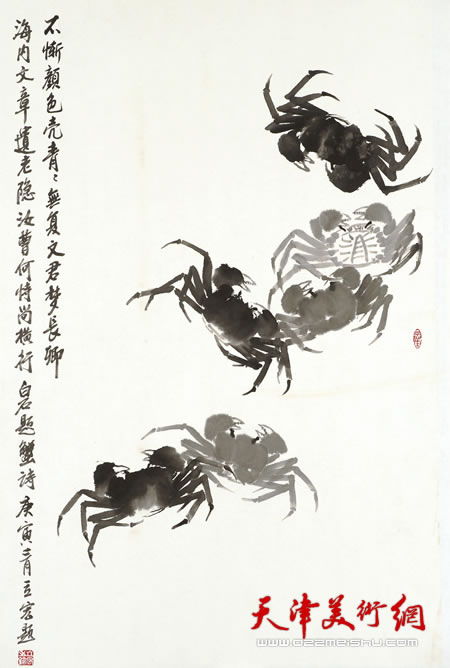 不慚顏色壳青〻無复文君梦長卿
海内文章遺老隐汝曹何恃尚横行 白石题蟹诗 庚寅三月立宏题
天津美術網
www.022meishu.com